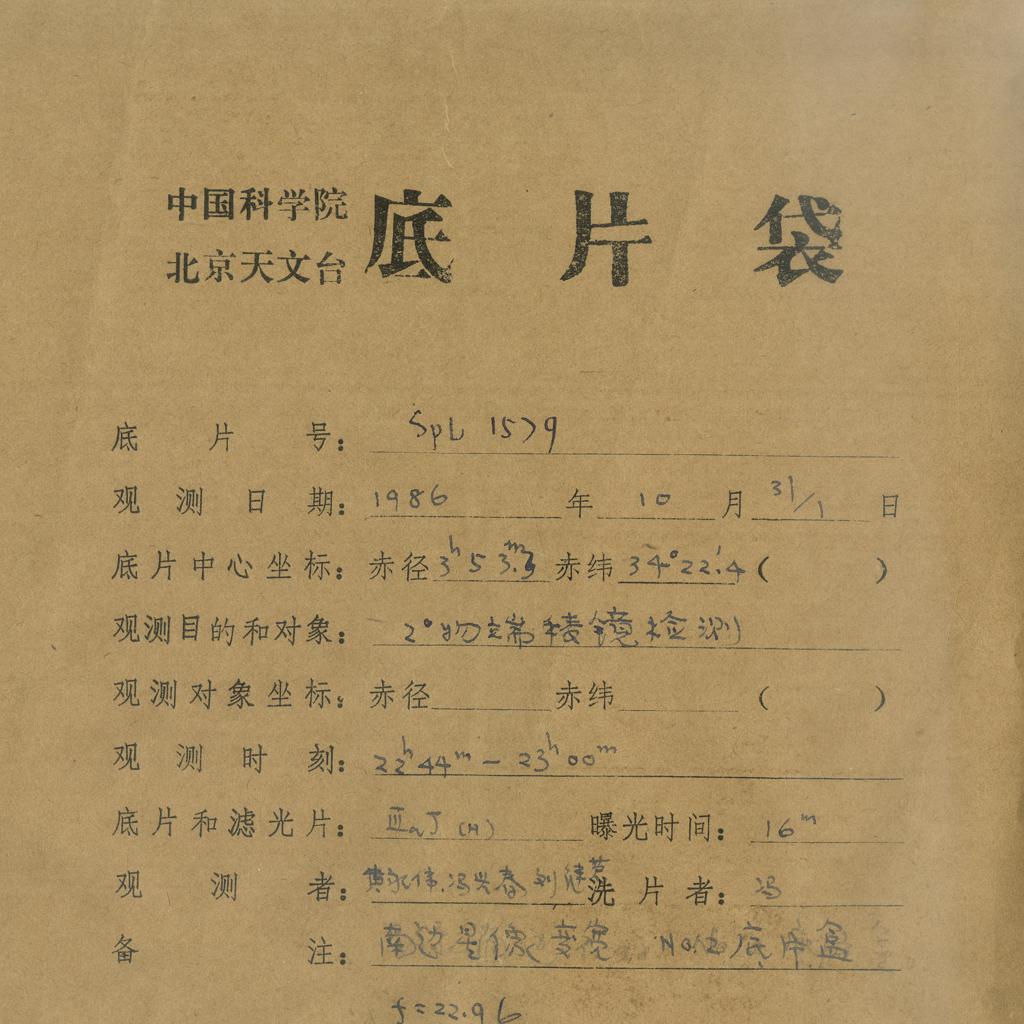 中国科学院
北京天文台
底片袋
底片号： SpL 1579
观测日期： 1986 年 10 月 31/1 日
底片中心坐标： 赤径 3h53m.3 赤纬 34°22'.4 ( )
观测目的和对象： 2°物端棱镜检测
观测对象坐标： 赤径 赤纬 ( )
观测时刻： 22h44m – 23h00m
底片和滤光片： ⅢaJ (H) 曝光时间： 16m
观测者： 冯兴春 刘 洗片者： 冯
备注： 南边星像变宽 No.2底片盒
f=22.96